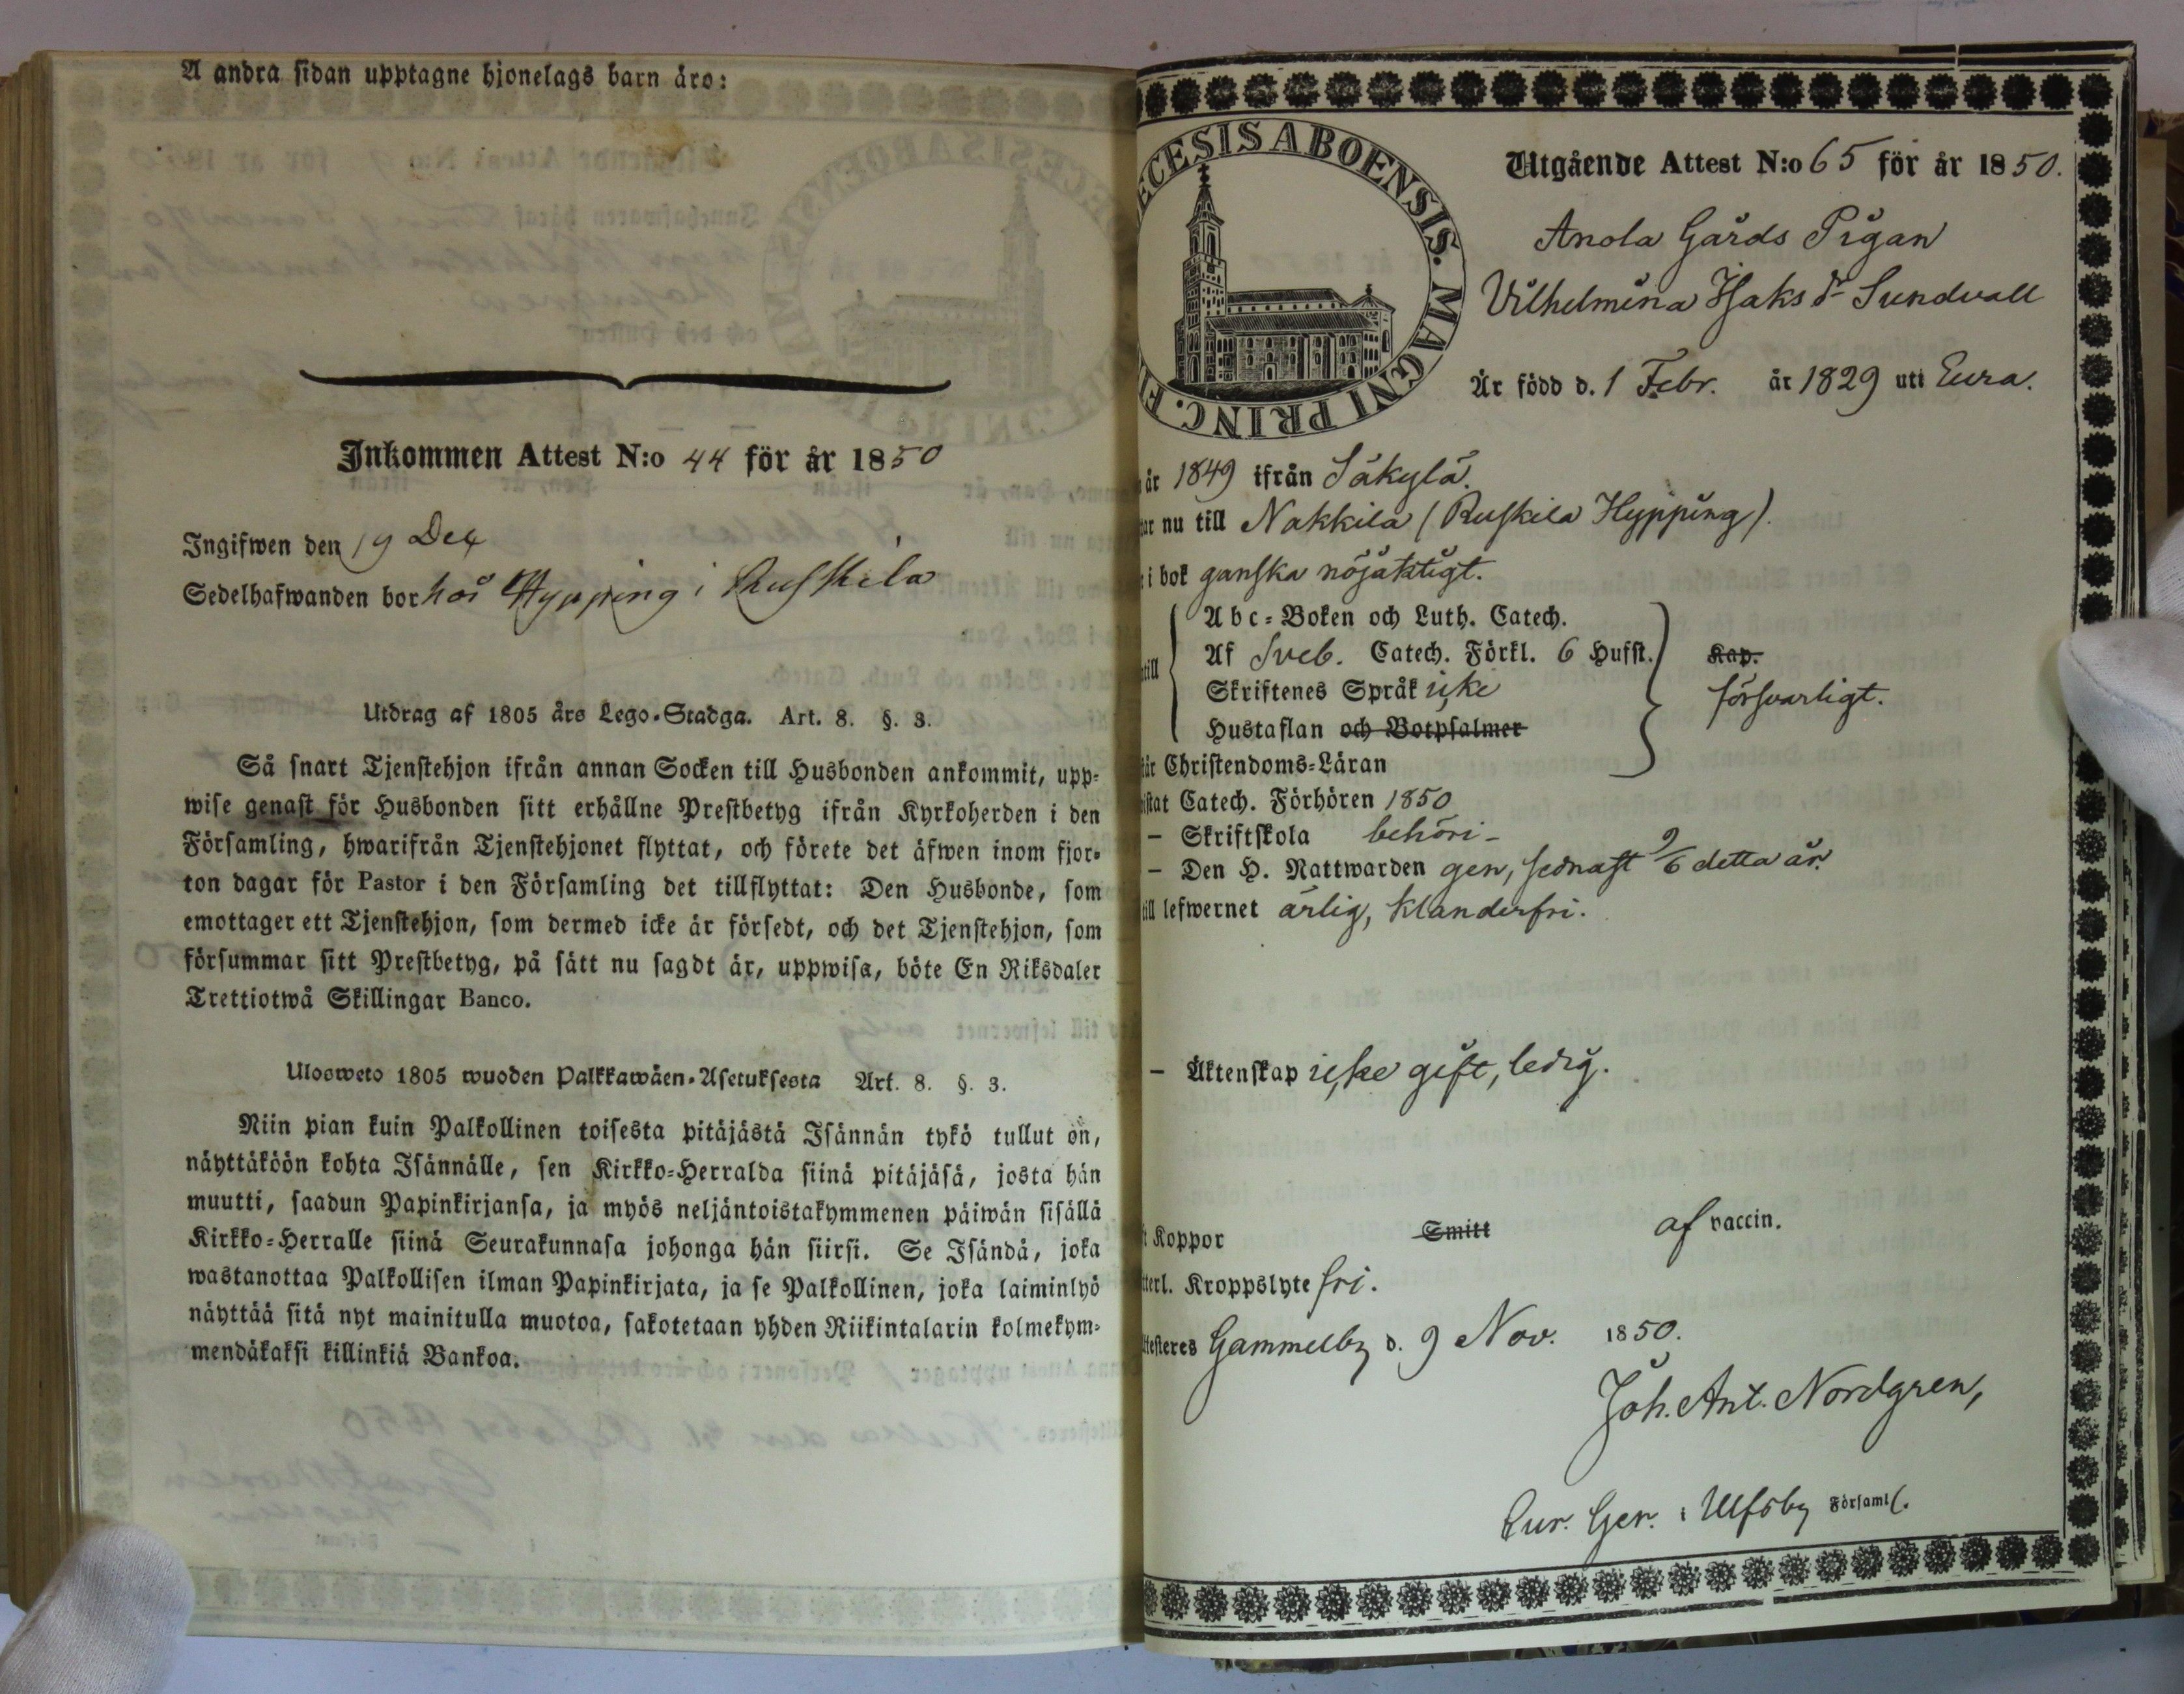 A andra sidan upptagne hjonelags barn äro:
Inkommen Attest N:o 44 för år 1850
Ingifwen den 19 Dec
Sedelhafwanden bor hos Hypping i Ruskila
Utdrag af 1805 års Lego-Stadga. Art. 8. §. 3.
Så snart Tjenstehjon ifrån annan Socken till Husbonden ankommit, upp-
wise genast för Husbonden sitt erhållne Prestbetyg ifrån Kyrkoherden i den
Församling, hwarifrån Tjenstehjonet flyttat, och förete det äfwen inom fjor-
ton dagar för Pastor i den Församling det tillflyttat: Den Husbonde, som
emottager ett Tjenstehjon, som dermed icke är försedt, och det Tjenstehjon, som
försummar sitt Prestbetyg, på sätt nu sagdt är, uppwisa, böte En Riksdaler
Trettiotwå Skillingar Banco.
Ulosweto 1805 wuoden Palkkawäen-Asetuksesta Art. 8. §. 3.
Niin pian kuin Palkollinen toisesta pitäjästä Isännän tykö tullut on,
näyttäköön kohta Isännälle, sen Kirkko-Herralda siinä pitäjäsä, josta hän
muutti, saadun Papinkirjansa, ja myös neljäntoistakymmenen päiwän sisällä
Kirkko-Herralle siinä Seurakunnasa johonga hän siirsi. Se Isändä, joka
wastanottaa Palkollisen ilman Papinkirjata, ja se Palkollinen, joka laiminlyö
näyttää sitä nyt mainitulla muotoa, sakotetaan yhden Riikintalarin kolmekym-
mendäkaksi killinkiä Bankoa.
ECESIS ABOENSIS. MAGNI PRINC. F
Utgående Attest N:o 65 för år 1850.
Anola Gårds Pigan
Vilhelmina Isaks dr Sundvall
Är född d. 1 Febr. år 1829 uti Eura.
år 1849 ifrån Säkylä.
ar nu till Nakkila (Ruskila Hypping).
i bok ganska nöjaktigt.
Abc-Boken och Luth. Catech.
till Af Sveb. Catech. Förkl. 6 Hufst. Kap.
Skriftenes Språk icke försvarligt.
Hustaflan och Botpsalmer
är Christendoms-Läran
istat Catech. Förhören 1850
— Skriftskola behöri-
— Den H. Nattwarden gen, sednast 9/6 detta år.
till lefwernet ärlig, klanderfri.
— Äktenskap icke gift, ledig.
t Koppor Smitt af vaccin.
tterl. Kroppslyte fri.
ttesteres Gammelby d. 9 Nov. 1850.
Joh. Ant. Nordgren,
Cur. Ger. i Ulfsby Församl.